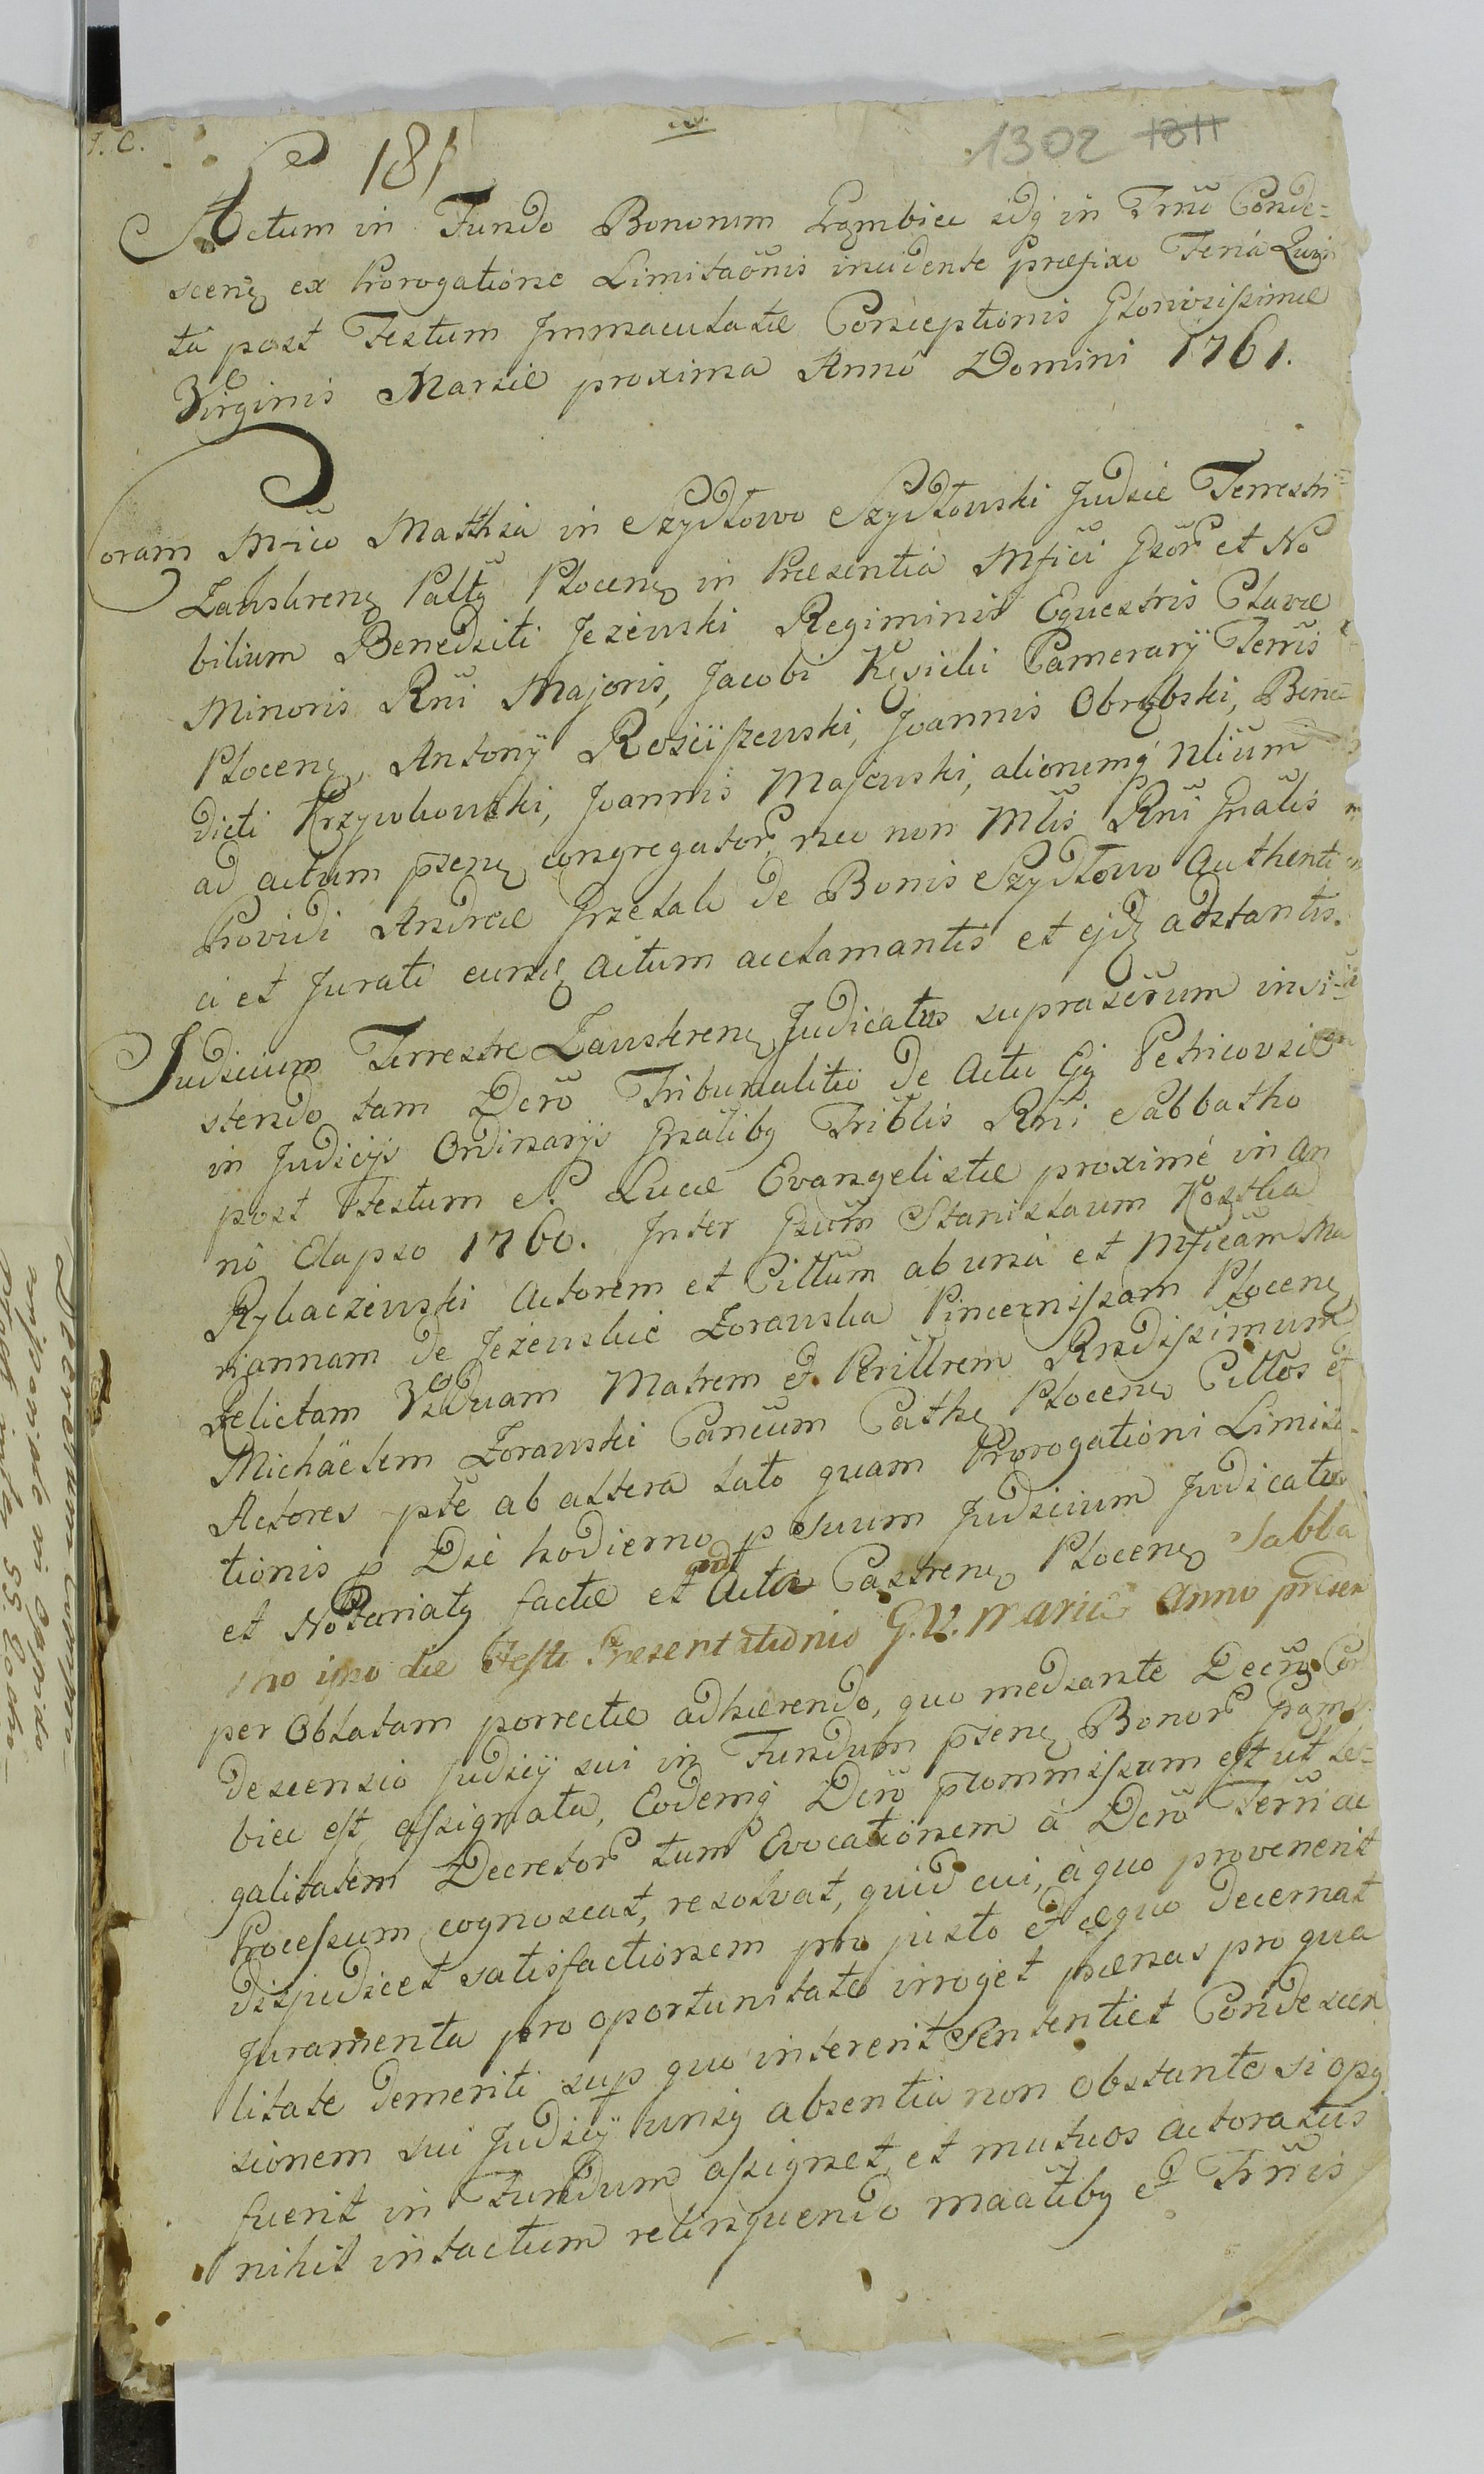 J. C.
181
1302 1811
Actum in Fundo Bonorum Grąmbice idq̃ in Trño Conde=
scenꝫ ex Prorogatione Limitaõnis incidente præfixo Feria Quin
ta post Festum Immaculatæ Conceptionis Gloriosissimæ
Virginis Mariæ proxima Anno Domini 1761.
Coram Mfico Mathia in Szydłowo Szydłowski Judice Terrestri
Zawskrenꝫ Palttq̃ Plocenꝫ in Præsentia Mfici Gsor̃ et No
bilium Benedicti Jeżewski Regiminis Equestris Clavæ
Minoris Rñi Majoris, Jacobi Kęsicki Camerarÿ Terris
Plocenꝫ, Antonÿ Rosciszewski, Joannis Obrębski, Bene=
dicti Krzywkowski, Joannis Majewski, aliorumq̃ Nlium
ad actum p̃senꝫ congregator̃, nec non Mlis Rñi Gñalis
Providi Andreæ Grzelak de Bonis Szydłowo Authenti
ci et Jurati eunꝫ Actum acclamantis et ejꝫ adstantis.
Judicium Terrestre Zawskrenꝫ Judicatus suprascrum insi=
stendo tam Dcrõ Tribunalitio de Actu Ejq̃ Petricoviæ
in Judicÿs Ordinarÿs Gñalibq̃ Triblis Rñi Sabbatho
post Festum S. Lucæ Evangelistæ proximè in An
nò Elapso 1760. Inter Gsum Stanislaum Kostka
Rykaczewski Actorem et Cittum ab una et Mficam Ma
riannam de Jeżewskie Żorawska Pincernissam Plocenꝫ
Relictam Viduam Matrem et Perillrem Rndissimum
Michaëlem Żorawski Cancum Cathꝫ Plocenꝫ Cittos et
Actores p̃te ab altera lato quam Prorogationi Limita
tionis p̃ Die hodierno p̃ Suum Judicium Judicatus
et Notariatq̃ factæ et ad Acta Castrenꝫ Plocenꝫ Sabba
tho ipso die Festi Præsentationis G. V. Mariæ Anno præsen
per Oblatam porrectæ adhærendo, quo mediante Decrõ Con
descensio Judicÿ sui in Fundum p̃senꝫ Bonor̃ Grąm
bice est assignata, Eodemq̃ Dcrõ p̃commissum est ut le=
galitatem Decretor̃ tum Evocationem à Dcrõ Terri ac
Processum cognoscat, resolvat, quid cui, à quo provenerit
dijudicet satisfactionem pro justo et æquo decernat
Juramenta pro oportunitate irroget pœnas pro qua
litate demeriti sup̃ quo intererit Sententiet Condescen
sionem sui Judicÿ uniq̃ absentia non obstante si opq̃
fuerit in Fundum assignet et mutuos actoratus
nihil intactum relinquendo maãtibq̃ et Trñis